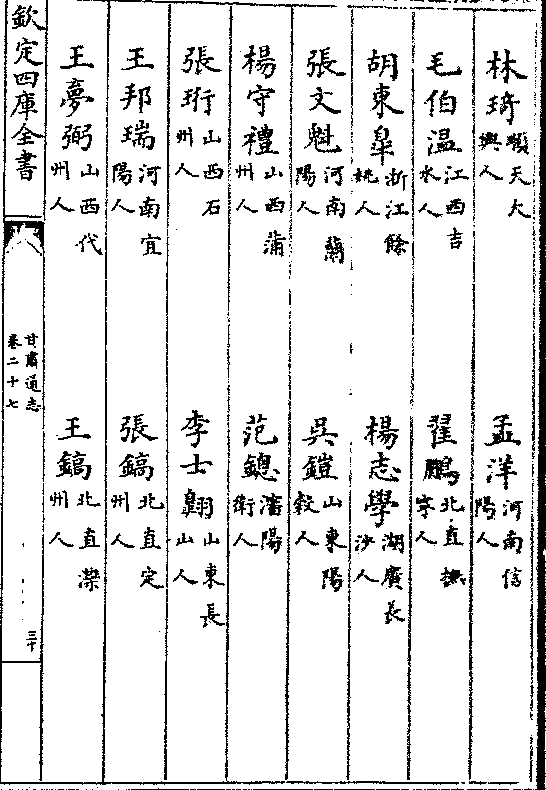 林琦 順天大興人 孟洋 河南信陽人
毛伯温 江西吉水人 翟鵬 北直撫寧人
胡東皐 浙江餘姚人 楊志學 湖廣長沙人
張文魁 河南蘭陽人 吳鎧 山東陽穀人
楊守禮 山西蒲州人 范鏓 瀋陽衛人
張珩 山西石州人 李士翺 山東長山人
王邦瑞 河南宜陽人 張鎬 北直定州人
王夢弼 山西代州人 王鎬 北直灤州人
欽定四庫全書
甘肅通志
卷二十七
三十